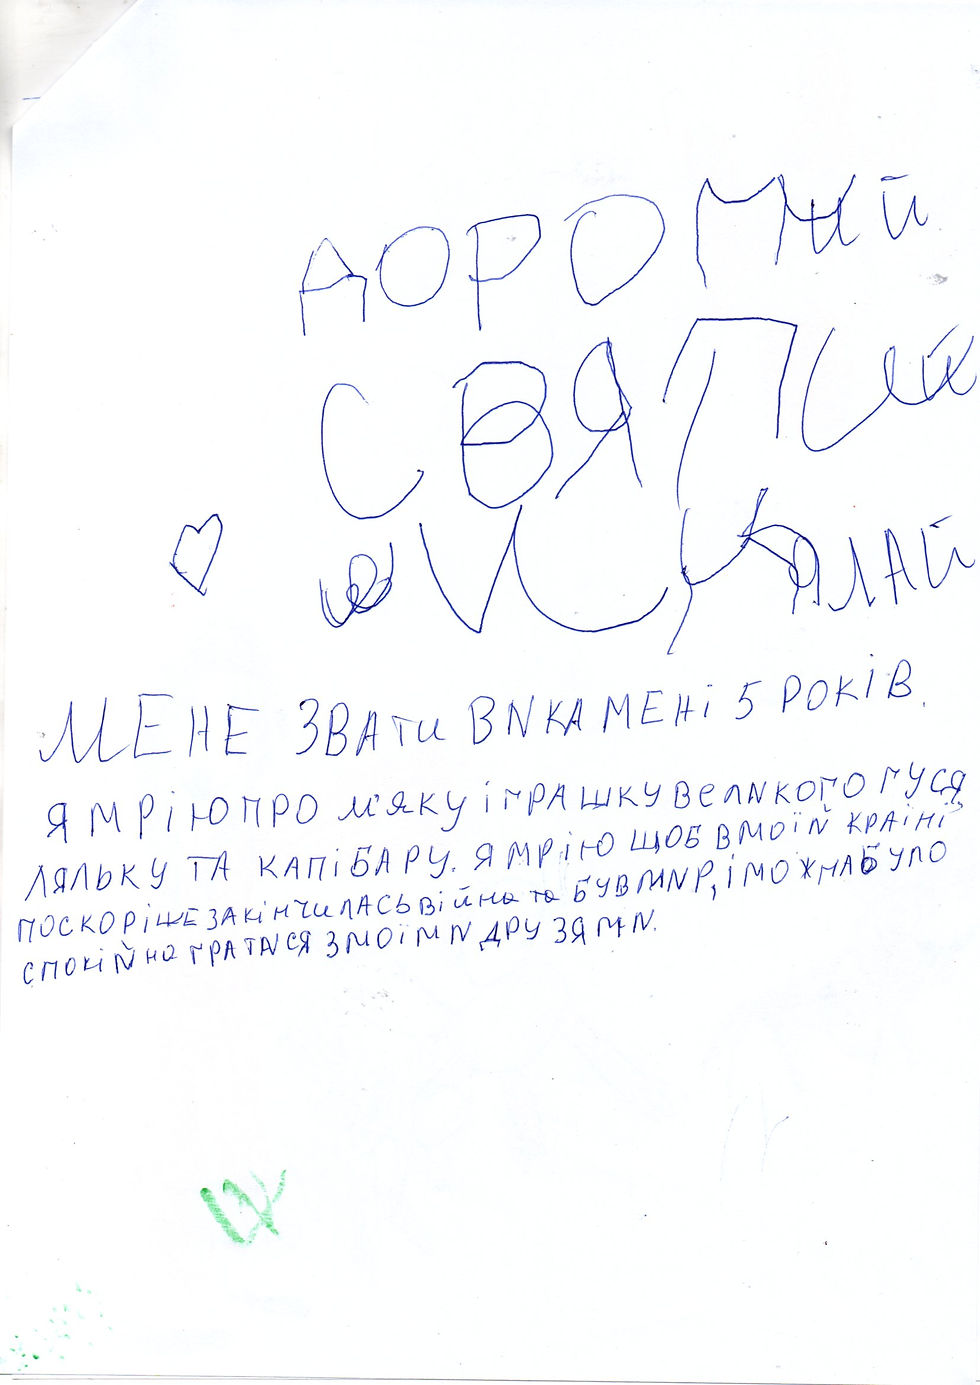 ДОРОГИЙ
СВЯТИЙ
МИКАЛАЙ
МЕНЕ ЗВАТИ ВИКА МЕНІ 5 РОКІВ.
Я МРІЮ ПРО М'ЯКУ ІГРАШКУ ВЕЛИКОГО ГУСЯ
ЛЯЛЬКУ ТА КАПІБАРУ. Я МРІЮ ЩОБ В МОЇЙ КРАЇНІ
ПОСКОРІШЕ ЗАКІНЧИЛАСЬ ВІЙНА ТА БУВ МИР, І МОЖНА БУЛО
СПОКІЙНО ГРАТИСЯ З МОЇМИ ДРУЗЯМИ.